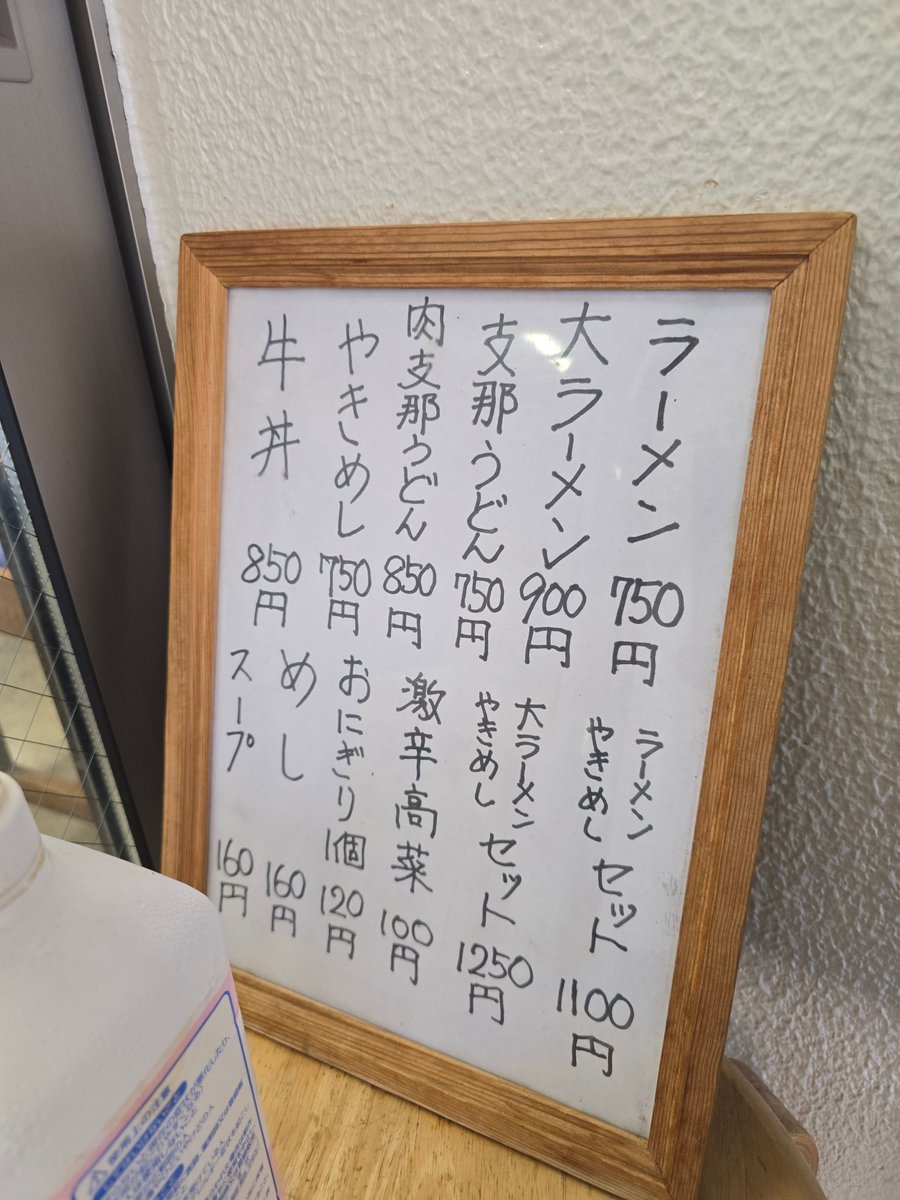 ラーメン 750円
大ラーメン 900円
支那うどん 750円
肉支那うどん 850円
やきしめし 750円
牛丼 850円
ラーメン
やきめし セット 1100円
大ラーメン
やきめし セット 1250円
激辛高菜 100円
おにぎり 1個 120円
めし 160円
スープ 160円
使用上の注意